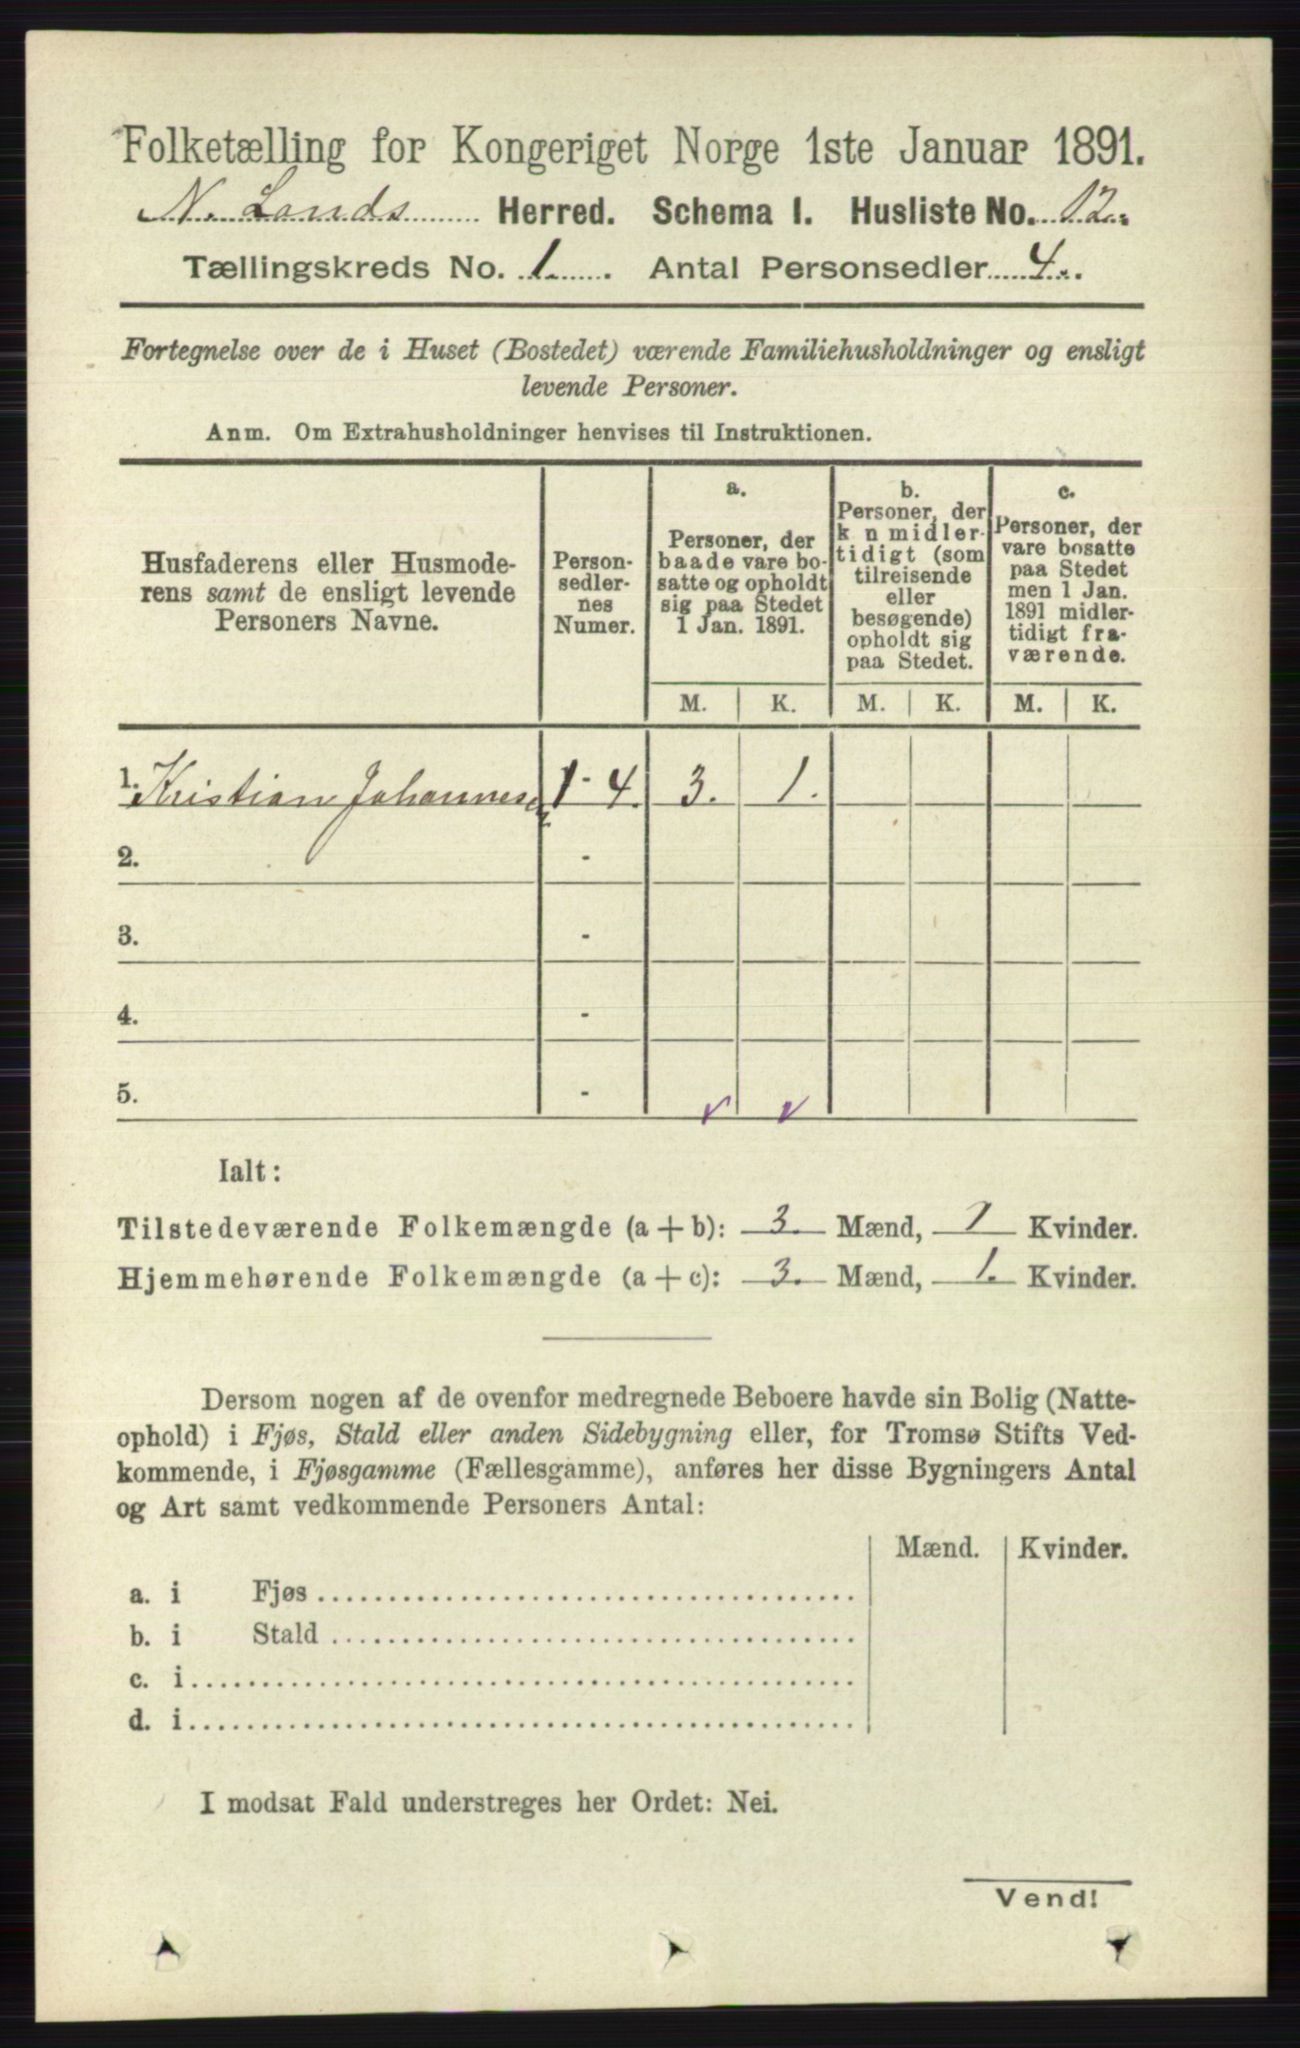 Folketælling for Kongeriget Norge 1ste Januar 1891.
N. Lands Herred. Schema I. Husliste No. 12.
Tællingskreds No. 1. Antal Personsedler 4.
Fortegnelse over de i Huset (Bostedet) værende Familiehusholdninger og ensligt
levende Personer.
Anm. Om Extrahusholdninger henvises til Instruktionen.
Husfaderens eller Husmode-
rens samt de ensligt levende
Personers Navne.
Person-
sedler-
nes
Numer.
a.
Personer, der
baade vare bo-
satte og opholdt
sig paa Stedet
1 Jan. 1891.
b.
Personer, der
k n midler-
tidigt (som
tilreisende
eller
besøgende)
opholdt sig
paa Stedet.
c.
Personer, der
vare bosatte
paa Stedet
men 1 Jan.
1891 midler-
tidigt fra-
værende.
M. K. M. K. M. K.
1. Kristian Johannesen 1 - 4. 3. 1.
2. -
3. -
4. -
5. -
Ialt:
Tilstedeværende Folkemængde (a + b): 3. Mænd, 1 Kvinder.
Hjemmehørende Folkemængde (a + c): 3. Mænd, 1. Kvinder.
Dersom nogen af de ovenfor medregnede Beboere havde sin Bolig (Natte-
ophold) i Fjøs, Stald eller anden Sidebygning eller, for Tromsø Stifts Ved-
kommende, i Fjøsgamme (Fællesgamme), anføres her disse Bygningers Antal
og Art samt vedkommende Personers Antal:
Mænd. Kvinder.
a. i Fjøs
b. i Stald
c. i
d. i
I modsat Fald understreges her Ordet: Nei.
Vend!